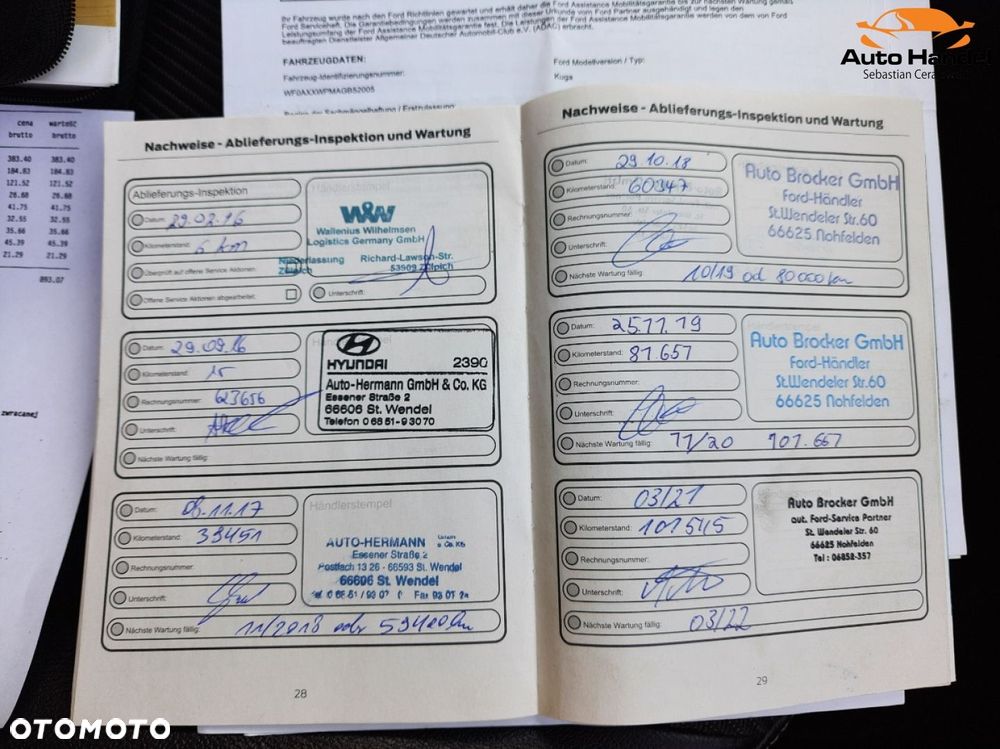 Ihr Fahrzeug wurde nach den Ford Richtlinien gewartet und erhält daher die Ford Assistance Mobilitätsgarantie bis zur nächsten Wartung gemäß
Ford Serviceheft. Die Garantiebedingungen werden zusammen mit dieser Urkunde vom Ford Partner ausgehändigt und legen den
Leistungsumfang der Ford Assistance Mobilitätsgarantie fest. Die Leistungen der Ford Assistance Mobilitätsgarantie werden von dem von Ford
beauftragten Dienstleister Allgemeiner Deutscher Automobil-Club e.V. (ADAC) erbracht.
FAHRZEUGDATEN:
Ford Modellversion / Typ:
Fahrzeug-Identifizierungsnummer:
Kuga
WF0AXXWPMAGB52005
Auto Handel
Sebastian
cena wartość
brutto brutto
383.40 383.40
184.83 184.83
121.52 121.52
26.68 26.68
41.75 41.75
32.55 32.55
35.66 35.66
45.39 45.39
21.29 21.29
893.07
zwracanej
Nachweise - Ablieferungs-Inspektion und Wartung
Ablieferungs-Inspektion
Händlerstempel
Datum: 29.02.16
Kilometerstand: 6 km
Überprüft auf offene Service Aktionen:
Offene Service Aktionen abgearbeitet:
Unterschrift:
W&W
Wallenius Wilhelmsen
Logistics Germany GmbH
Niederlassung Richard-Lawson-Str.
Zülpich 53909 Zülpich
Datum: 29.09.16
Kilometerstand: 15
Rechnungsnummer: 623656
Unterschrift:
Nächste Wartung fällig:
HYUNDAI 2390
Auto-Hermann GmbH & Co. KG
Essener Straße 2
66606 St. Wendel
Telefon 0 68 51-9 30 70
Datum: 08.11.17
Kilometerstand: 39451
Rechnungsnummer:
Unterschrift:
Nächste Wartung fällig: 11/2018 oder 59400 km
Händlerstempel
AUTO-HERMANN GmbH & Co. KG
Essener Straße 2
Postfach 13 26 - 66593 St. Wendel
66606 St. Wendel
28
Nachweise - Ablieferungs-Inspektion und Wartung
Datum: 29.10.18
Kilometerstand: 60347
Rechnungsnummer:
Unterschrift:
Nächste Wartung fällig: 10/19 od 80000 km
Auto Brocker GmbH
Ford-Händler
St.Wendeler Str.60
66625 Nohfelden
Datum: 25.11.19
Kilometerstand: 81.657
Rechnungsnummer:
Unterschrift:
Nächste Wartung fällig: 11/20 101.657
Händlerstempel
Auto Brocker GmbH
Ford-Händler
St.Wendeler Str.60
66625 Nohfelden
Datum: 03/21
Kilometerstand: 101545
Rechnungsnummer:
Unterschrift:
Nächste Wartung fällig: 03/22
Auto Brocker GmbH
aut. Ford-Service Partner
St. Wendeler Str. 60
66625 Nohfelden
Tel : 06852-357
29
OTOMOTO